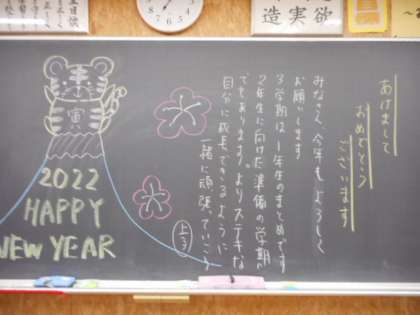 あけまして
おめでとう
ございます
みなさん、今年もよろしく
お願いします
3学期は1年生のまとめです
2年生に向けた準備の学期
でもあります。よりステキな
自分に成長できるように
一緒に頑張っていこう
寅
2022
HAPPY
NEW YEAR
造 実 欲